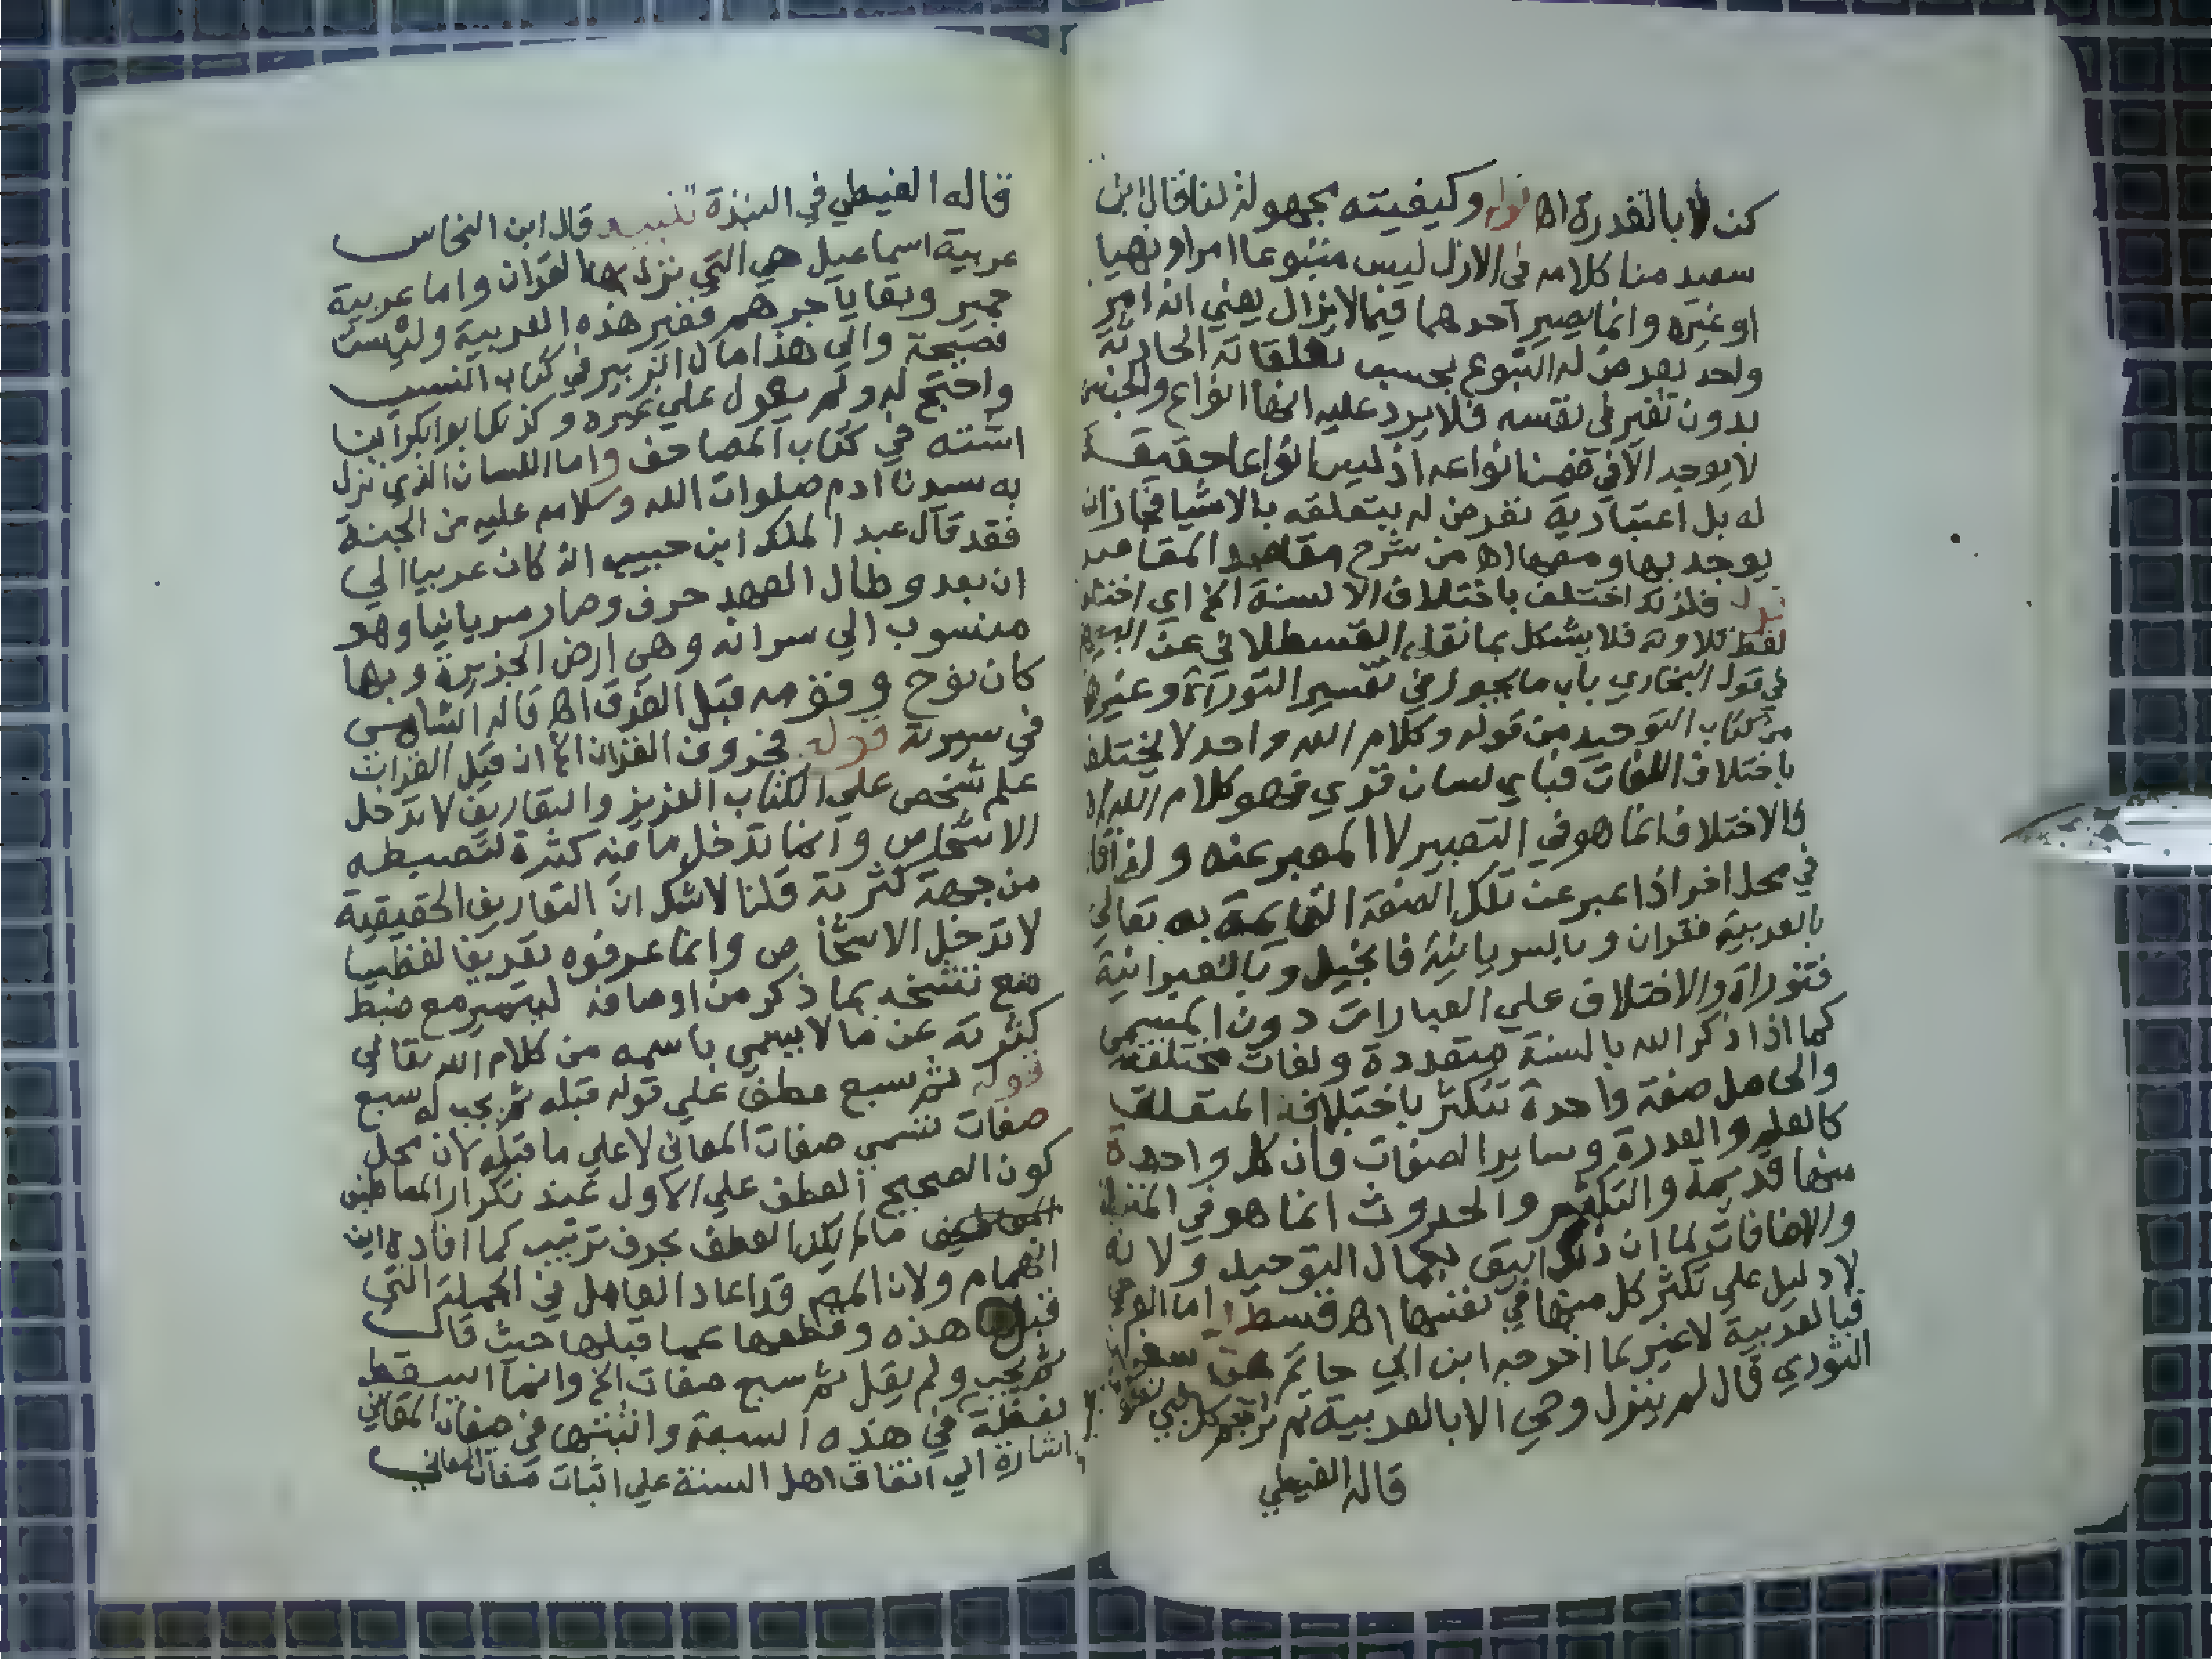 كن لا بالقدرة اه قوله وكيفيته مجهولة لنا قال ابن
سعيد منا كلامه في الازل ليس متنوعا امرا ونهيا
او غيره وانما يصير احدهما فيما لا يزال يعني انه امر
واحد يعرض له التنوع بحسب تعلقاته الحادثة
بدون تغير في نفسه فلا يرد عليه انها انواع والجنس
لا يوجد الا في ضمن انواعه اذ ليس انواعا حقيقة
له بل اعتبارية تعرض له بتعلقه بالاشيا فجاز ان
يوجد بها ومعها اه من شرح مقاصد المقاصد
قوله فلذلك اختلف باختلاف الالسنة الخ اي اختلف
لفظ تلاوته فلا يشكل بما نقله القسطلاني عن البيهقي
في قول البخاري باب ما يجوز في تفسير التوراة وغيرها
من كتاب التوحيد من قوله وكلام الله واحد لا يختلف
باختلاف اللغات فباي لسان قري فهو كلام الله اه
فالاختلاف انما هو في التعبير لا المعبر عنه ولذا قال
في محل اخر اذا عبر عن تلك الصفة القايمة به تعالي
بالعربية فقران وبالسريانية فانجيل وبالعبرانية
فتوراة والاختلاف علي العبارات دون المسمي
كما اذا ذكر الله بالسنة متعددة ولغات مختلفة
والحاصل صفة واحدة تتكثر باختلاف المتعلق
كالعلم والقدرة وساير الصفات فان كل واحدة
منها قديمة والتكثر والحدوث انما هو في المتعلق
والاضافات لما ان ذلك اليق بكمال التوحيد ولانه
لا دليل علي تكثر كل منها في نفسها اه قسط اما الوحي
فبالعربية لا غير لما اخرجه ابن ابي حاتم عن سفيان
الثوري قال لم ينزل وحي الا بالعربية ثم ترجم كل نبي لقومه
قاله الغيطي
قاله الغيطي في النبذة تنبيه قال ابن النحاس
عربية اسماعيل هي التي نزل بها القران واما عربية
حمير وبقايا جرهم فغير هذه العربية وليست
فصيحة والي هذا مال الزبير في كتاب النسب
واحتج له ولم يعول علي غيره وكذلك ابو بكر ابن
اشته في كتاب المصاحف واما اللسان الذي نزل
به سيدنا ادم صلوات الله وسلامه عليه من الجنة
فقد قال عبد الملك ابن حبيب انه كان عربيا الي
ان بعد وطال العهد حرف وصار سريانيا وهو
منسوب الي سرانه وهي ارض الجزيرة وبها
كان نوح وقومه قبل الغرق اه قاله الشامي
في سيرته قوله فخروف القران الخ ان قيل القران
علم شخص علي الكتاب العزيز والتعاريف لا تدخل
الاشخاص وانما تدخل ما فيه كثرة لتضبطه
من جهة كثرته قلنا لا شك ان التعاريف الحقيقية
لا تدخل الاشخاص وانما عرفوه تعريفا لفظيا
مع تشخصه بما ذكر من اوصافه ليتميز مع ضبط
كثرته عن ما لا يسمي باسمه من كلام الله تعالي
قوله ثم سبع عطف علي قوله قبله ثم يجب له سبع
صفات تسمي صفات المعاني لا علي ما قبله لان محل
كون الصحيح العطف علي الاول عند تكرار المعاطيف
ما لم يكن العطف بحرف ترتيب كما افاده ابن
الهمام ولان المص قد اعاد العامل في الجملة التي
قبل هذه وقطعها عما قبلها حيث قال
ثم يجب ولم يقل ثم سبع صفات الخ وانما اسقط
لفظة في هذه السبعة واثبتها في صفات المعاني
اشارة الي اتفاق اهل السنة علي اثبات صفات المعاني